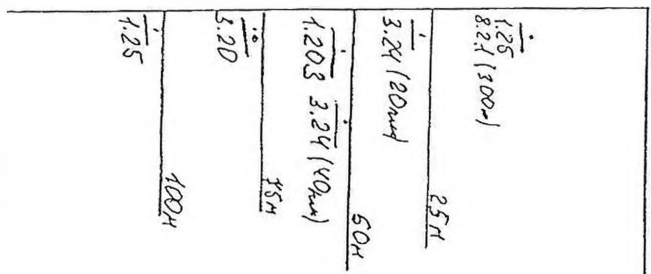 1.25
8.2.1 (300м)
25м
3.24 (20км)
50м
1.20.3 3.24 (40км)
75м
5.20
100м
1.25